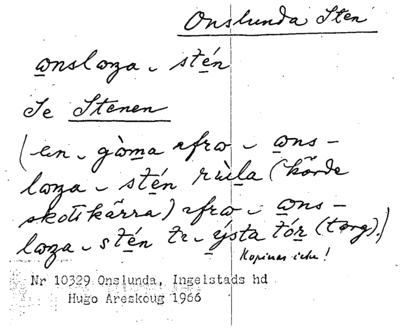 Onslunda Sten
ọnslɷza ˗ stén
Se Stenen
(en ˗ gòma afrɷ ˗ ọns-
lɷza ˗ stén rùla (körde
skottkärra) afrɷ ˗ ọns-
lɷza ˗ stén te ˗ ýsta tór (torg).)
Kopieras icke!
Nr 10329 Onslunda, Ingelstads hd
Hugo Areskoug 1966